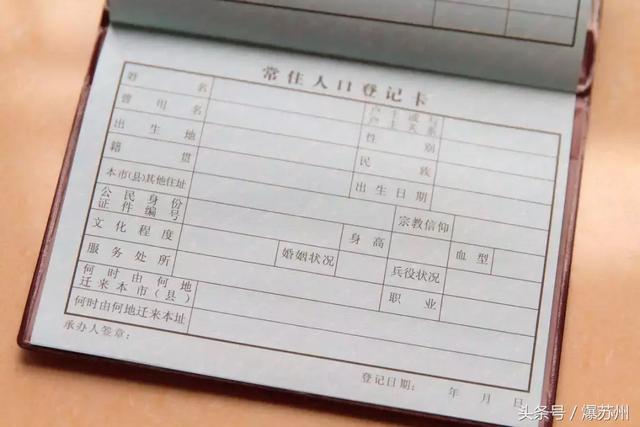 常住人口登记卡
姓名 户主或与户主关系
曾用名 性别
出生地 民族
籍贯 出生日期
本市(县)其他住址 宗教信仰
公民身份证件编号 身高 血型
文化程度 婚姻状况 兵役状况
服务处所 职业
何时由何地迁来本市(县)
何时由何地迁来本址
承办人签章: 登记日期: 年 月 日
头条号/爆苏州